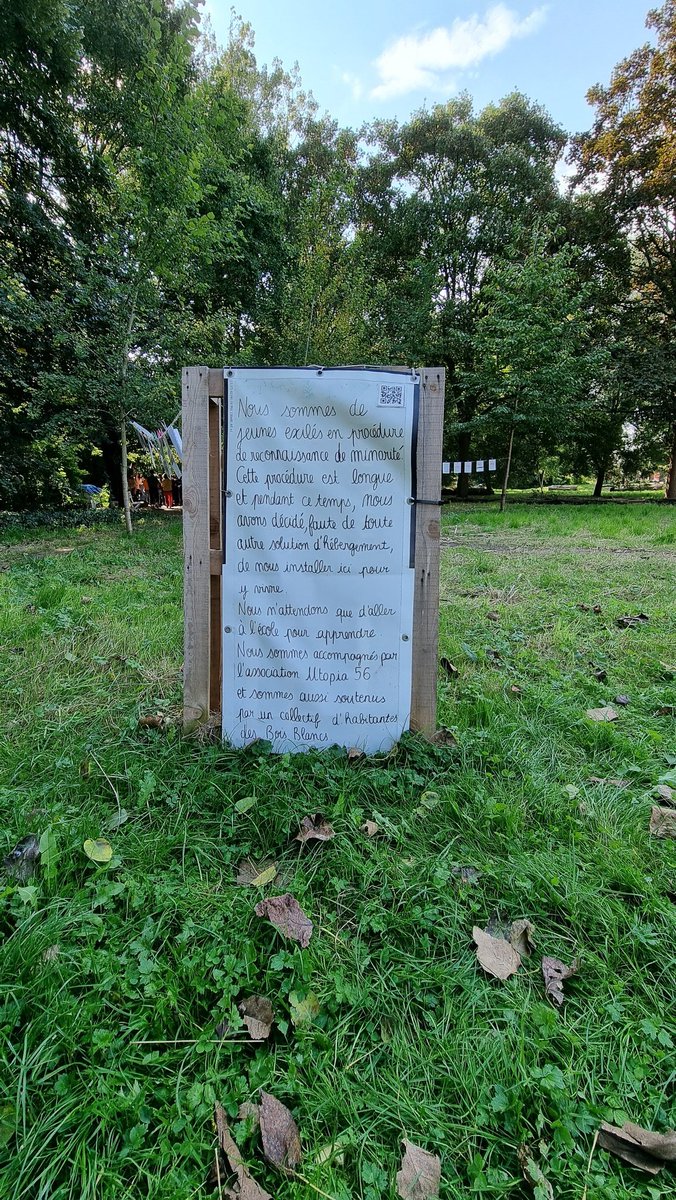 Nous sommes de
jeunes exilés en procédure
de reconnaissance de minorité.
Cette procédure est longue
et pendant ce temps, nous
avons décidé, faute de toute
autre solution d'hébergement,
de nous installer ici pour
y vivre.
Nous n'attendons que d'aller
à l'école pour apprendre.
Nous sommes accompagnés par
l'association Utopia 56
et sommes aussi soutenus
par un collectif d'habitantes
des Bois Blancs.